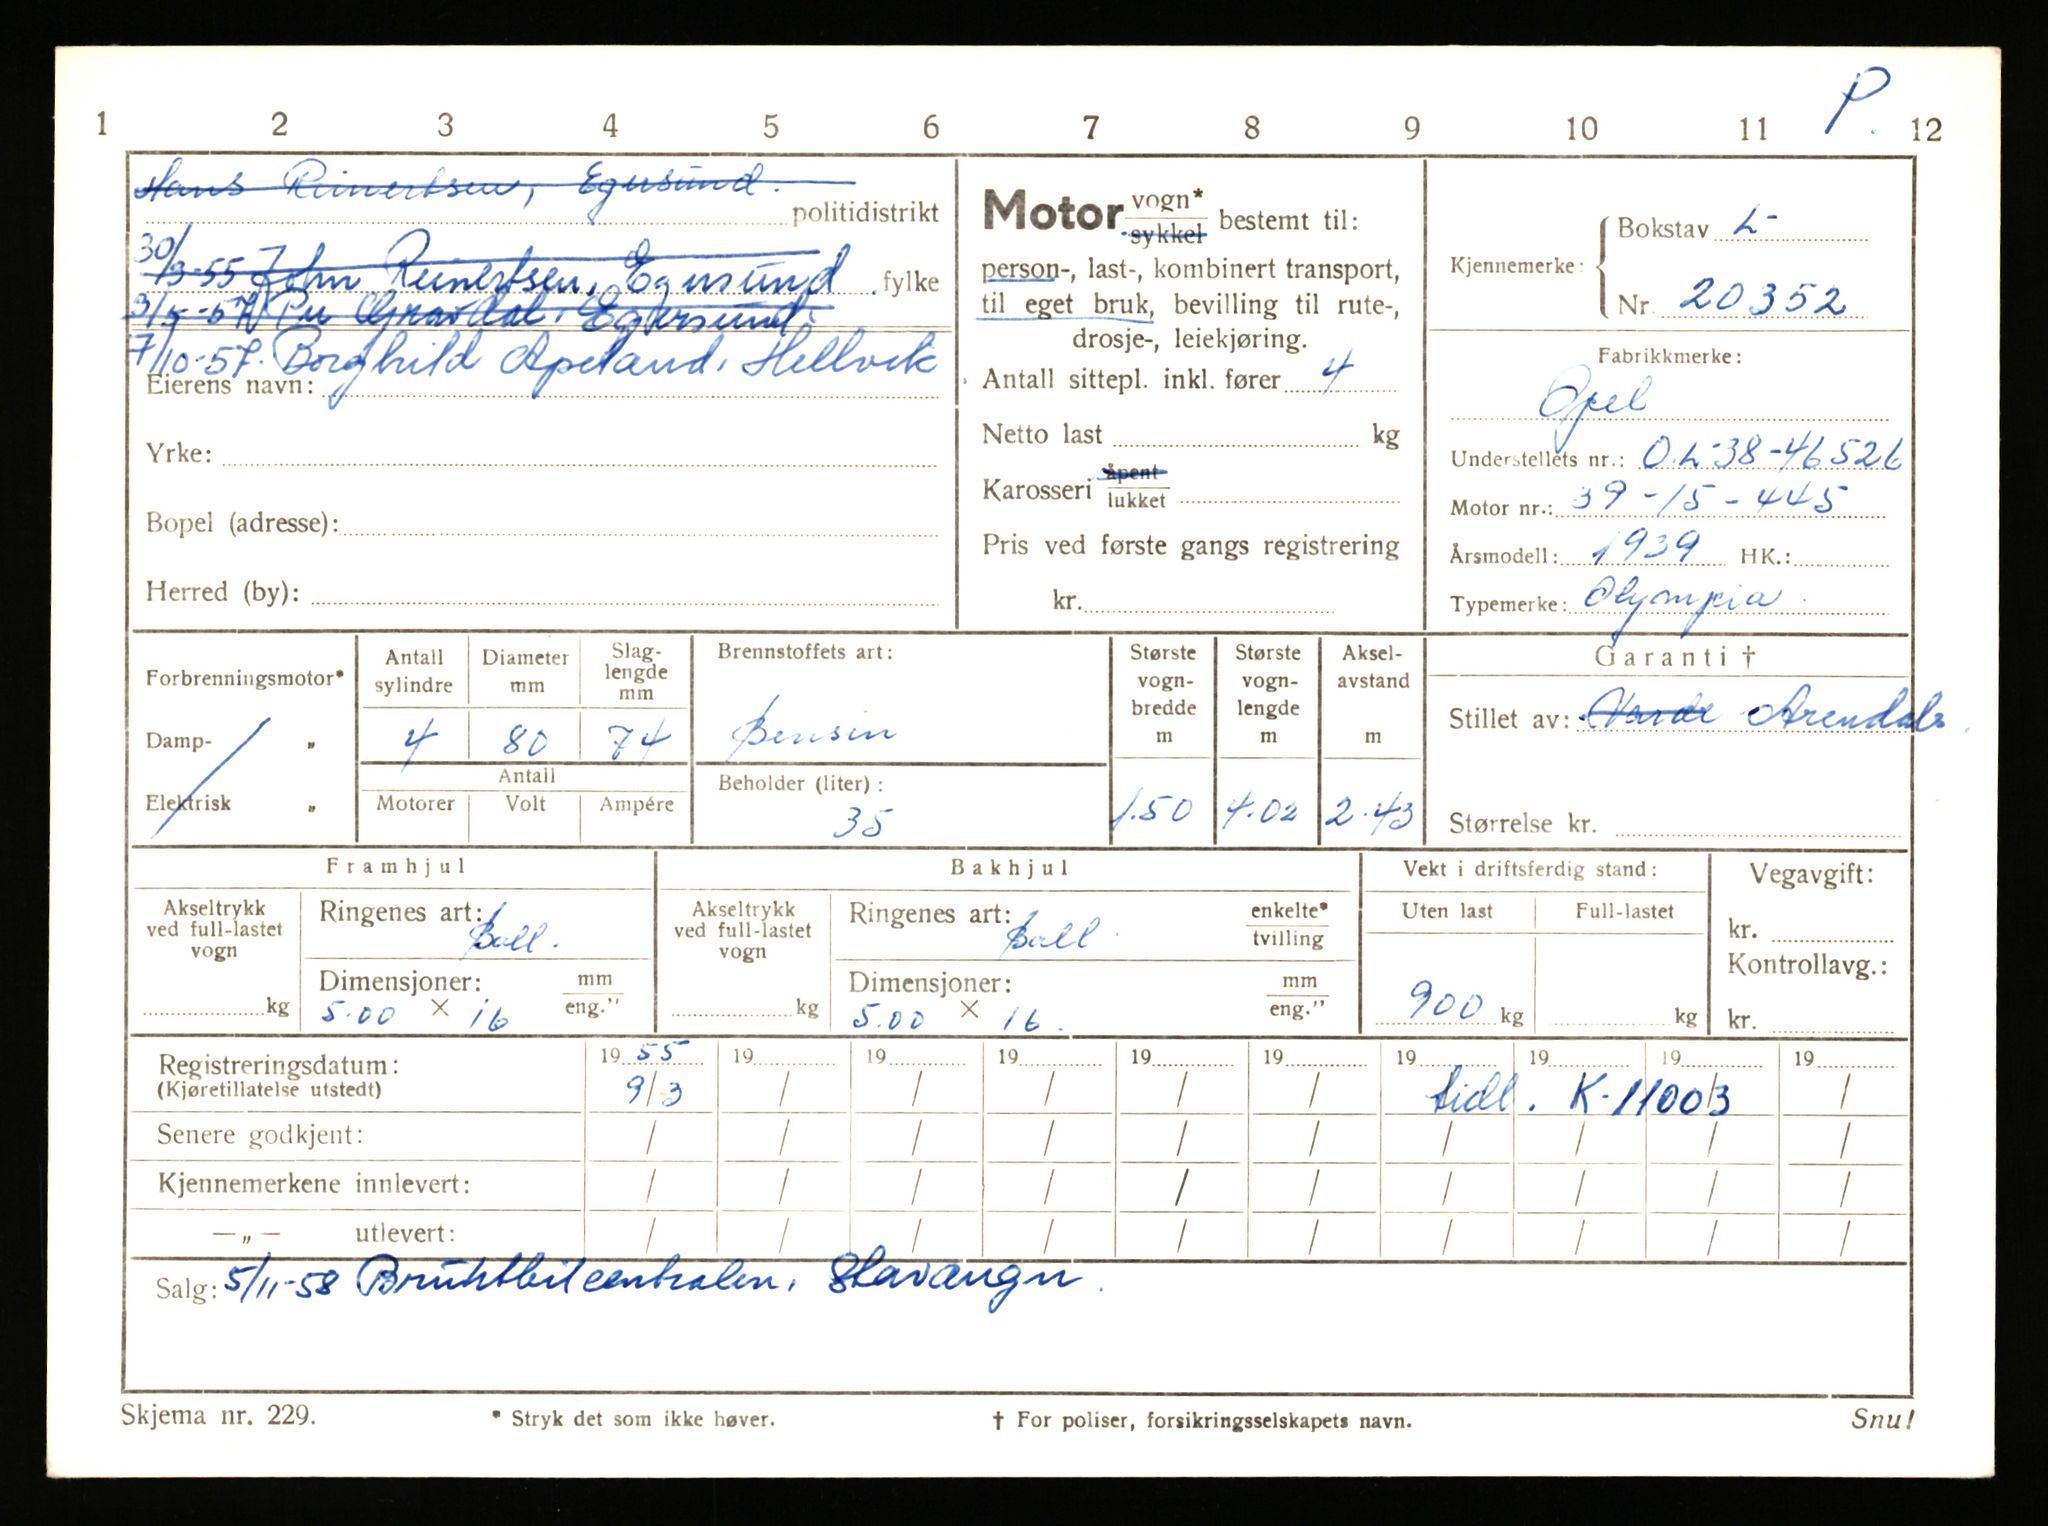 P.
1 2 3 4 5 6 7 8 9 10 11 12
Hans Reinertsen, Egersund.
politidistrikt
30/3-55 John Reinertsen, Egersund fylke
3/5-57 Per Gravdal, Egersund
7/10-57. Borghild Apeland, Hellvik
Eierens navn:
Yrke:
Bopel (adresse):
Herred (by):
Motor vogn* sykkel bestemt til:
person-, last-, kombinert transport,
til eget bruk, bevilling til rute-,
drosje-, leiekjøring.
Antall sittepl. inkl. fører 4
Netto last kg
Karosseri åpent lukket
Pris ved første gangs registrering
kr.
Kjennemerke: Bokstav L
Nr. 20352
Fabrikkmerke:
Opel
Understellets nr.: O.L-38-46526
Motor nr.: 39-15-445
Årsmodell: 1939 HK.:
Typemerke: Olympia
Forbrenningsmotor*
Damp- „
Elektrisk „
Antall sylindre
Diameter mm
Slaglengde mm
4 80 74
Antall
Motorer Volt Ampére
Brennstoffets art:
Bensin
Beholder (liter):
35
Største vognbredde m
1.50
Største vognlengde m
4.02
Akselavstand m
2.43
Garanti †
Stillet av: Norde Arendals
Størrelse kr.
Framhjul
Akseltrykk ved full-lastet vogn
kg
Ringenes art: Ball.
Dimensjoner: mm eng."
5.00 × 16
Bakhjul
Akseltrykk ved full-lastet vogn
kg
Ringenes art: Ball enkelte* tvilling
Dimensjoner: mm eng."
5.00 × 16.
Vekt i driftsferdig stand:
Uten last Full-lastet
900 kg kg
Vegavgift:
kr.
Kontrollavg.:
kr.
Registreringsdatum: 19 55 19 19 19 19 19 19 19 19 19
(Kjøretillatelse utstedt) 9/3 / / / / / tidl. K-11003 /
Senere godkjent: / / / / / / / / / /
Kjennemerkene innlevert: / / / / / / / / / /
—„— utlevert: / / / / / / / / / /
Salg: 5/11-58 Bruktbilcentralen, Stavanger.
Skjema nr. 229. * Stryk det som ikke høver. † For poliser, forsikringsselskapets navn. Snu!